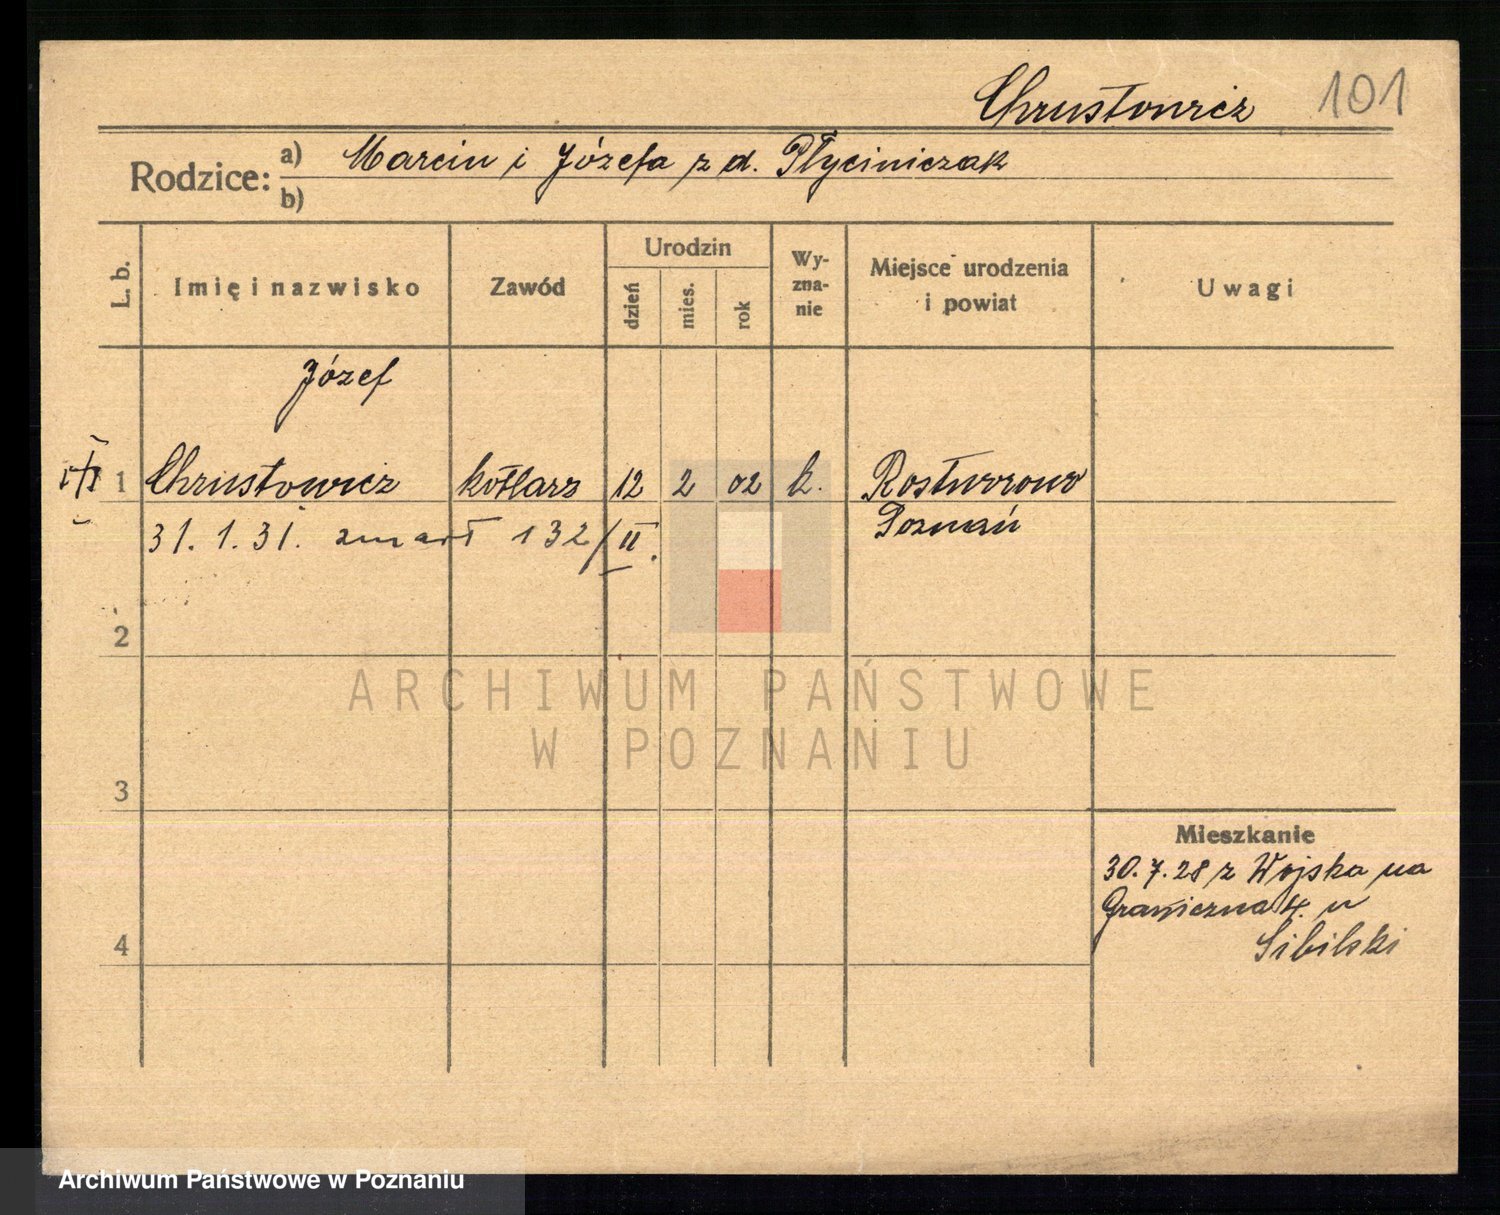 Chrustowicz 101
Rodzice: a) Marcin i Józefa z d. Płyciniczak
b)
L. b. Imię i nazwisko Zawód Urodzin dzień mies. rok Wy-zna-nie Miejsce urodzenia i powiat Uwagi
Józef
1 Chrustowicz kotlarz 12 2 02 k. Rostworowo
Poznań
31. 1. 31. zmarł 132/II.
2
ARCHIWUM PAŃSTWOWE
W POZNANIU
3
Mieszkanie
30.7.28 z Wojska na
Graniczna 4. u
Sibilski
4
Archiwum Państwowe w Poznaniu